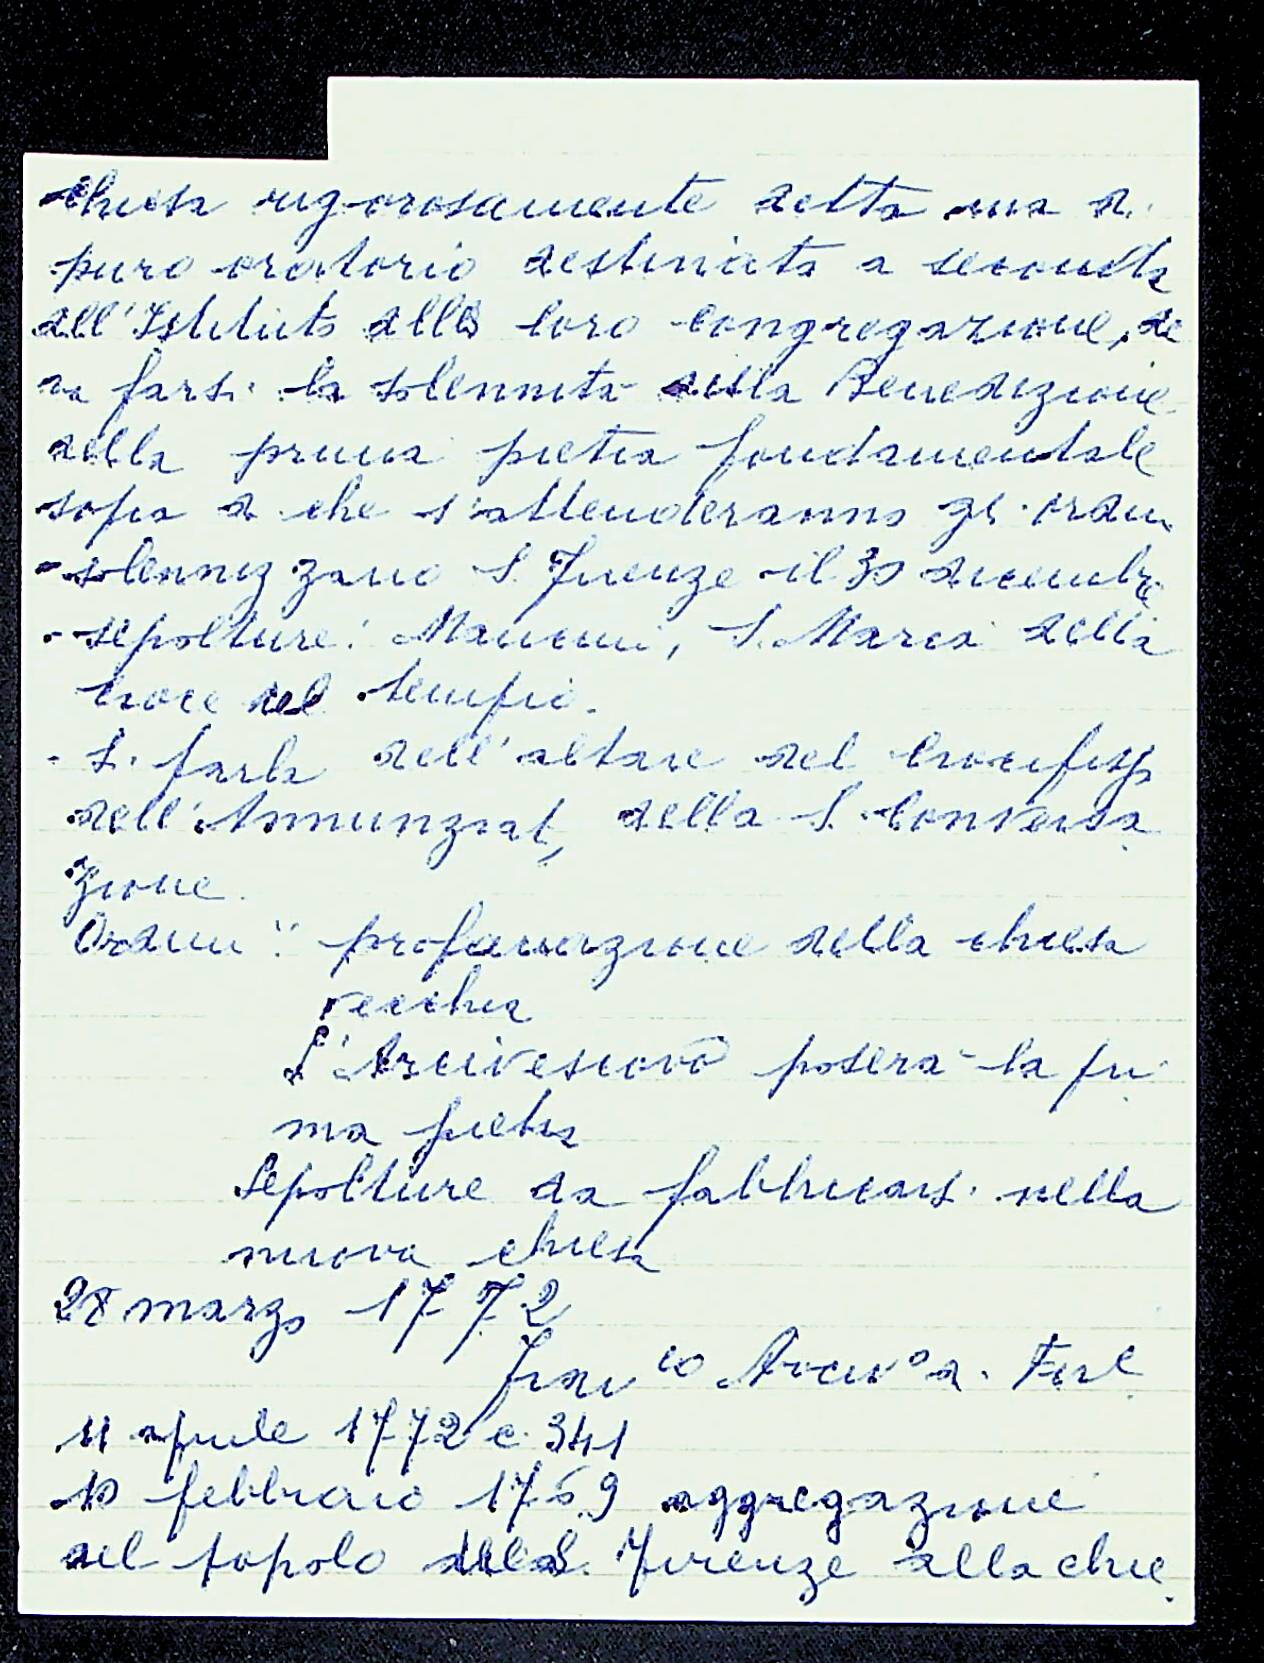 chiesa rigorosamente detta ma di
puro oratorio destinato a seconda
dell'Istituto della loro congregazione, de
va farsi la solennità della Benedizione
della prima pietra fondamentale
sopra di che s'attenderanno gl'ordini
- solennizzano S. Firenze il 30 dicembre
- sepolture: Mancini, S. Maria della
croce del tempio.
- Si parla dell'altare del Crocifisso
dell'Annunziat, della S. Conversa
zione.
Ordini: profanazione della chiesa
vecchia
L'Arcivescovo poserà la pri
ma pietra
Sepolture da fabbricarsi nella
nuova chiesa
28 marzo 1772
Franco Arcivo di Fire
11 aprile 1772 c. 341
10 febbraio 1769 aggregazione
del popolo della S. Firenze alla chie